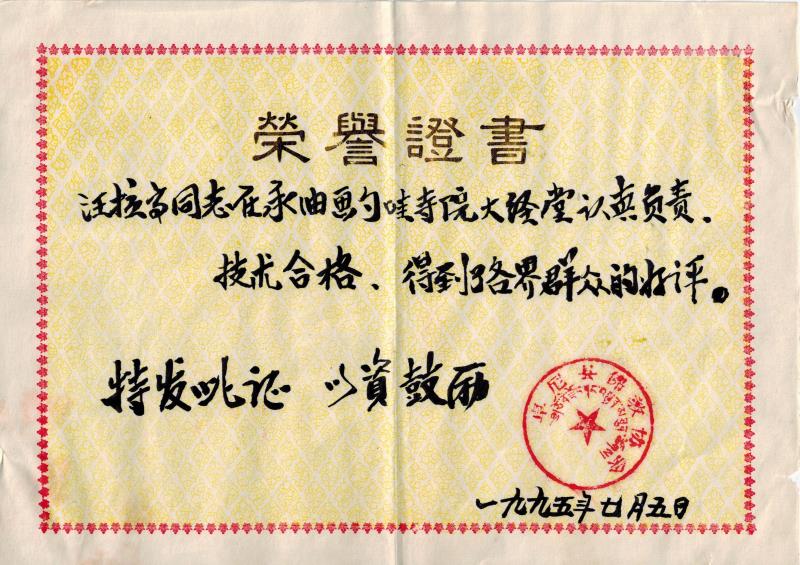 榮譽證書
汪扎帝同志在承油画勺哇寺院大经堂认真负责、
技术合格、得到了各界群众的好评。
特发此证 以資鼓励
卓尼县佛教协会
一九九五年廿月五日